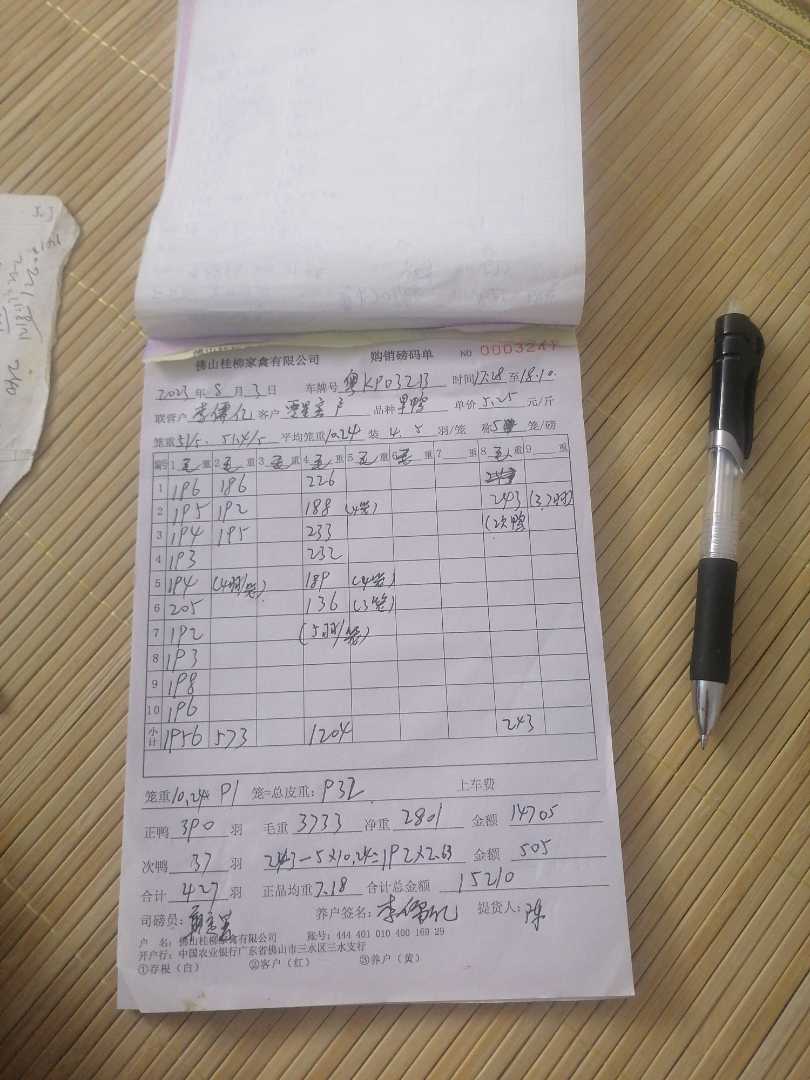 佛山桂柳家禽有限公司 购销磅码单 NO 0003241
2023年8月3日 车牌号 粤KP0321J 时间17:28至18:10.
联管户 李儒亿 客户 品种 旱鸭 单价 5.25 元/斤
笼重51/5. 51.4/5 平均笼重10.24 装 4.5 羽/笼 称5 笼/磅
编号 1 毛 重 2 毛 重 3 毛 重 4 毛 重 5 毛 重 6 毛 重 7 重 8 毛 重 9 重
1 196 186 226
2 195 192 188 (4笼) 243 (37羽)
3 194 195 233 (次鸭
4 193 232
5 194 (4羽/笼) 189 (4笼)
6 205 136 (3笼)
7 192 (5羽/笼)
8 193
9 198
10 196
小计 1956 573 1204 243
笼重10.24 91 笼=总皮重: 932 上车费
正鸭 390 羽 毛重 3733 净重 2801 金额 14705
次鸭 37 羽 243-5×10.24=192×2.63 金额 505
合计 427 羽 正品均重7.18 合计总金额 15210
司磅员: 养户签名: 李儒亿 提货人: 陈
户 名: 佛山桂柳家禽有限公司 账号: 444 401 010 400 169 29
开户行: 中国农业银行广东省佛山市三水区三水支行
①存根（白） ②客户（红） ③养户（黄）